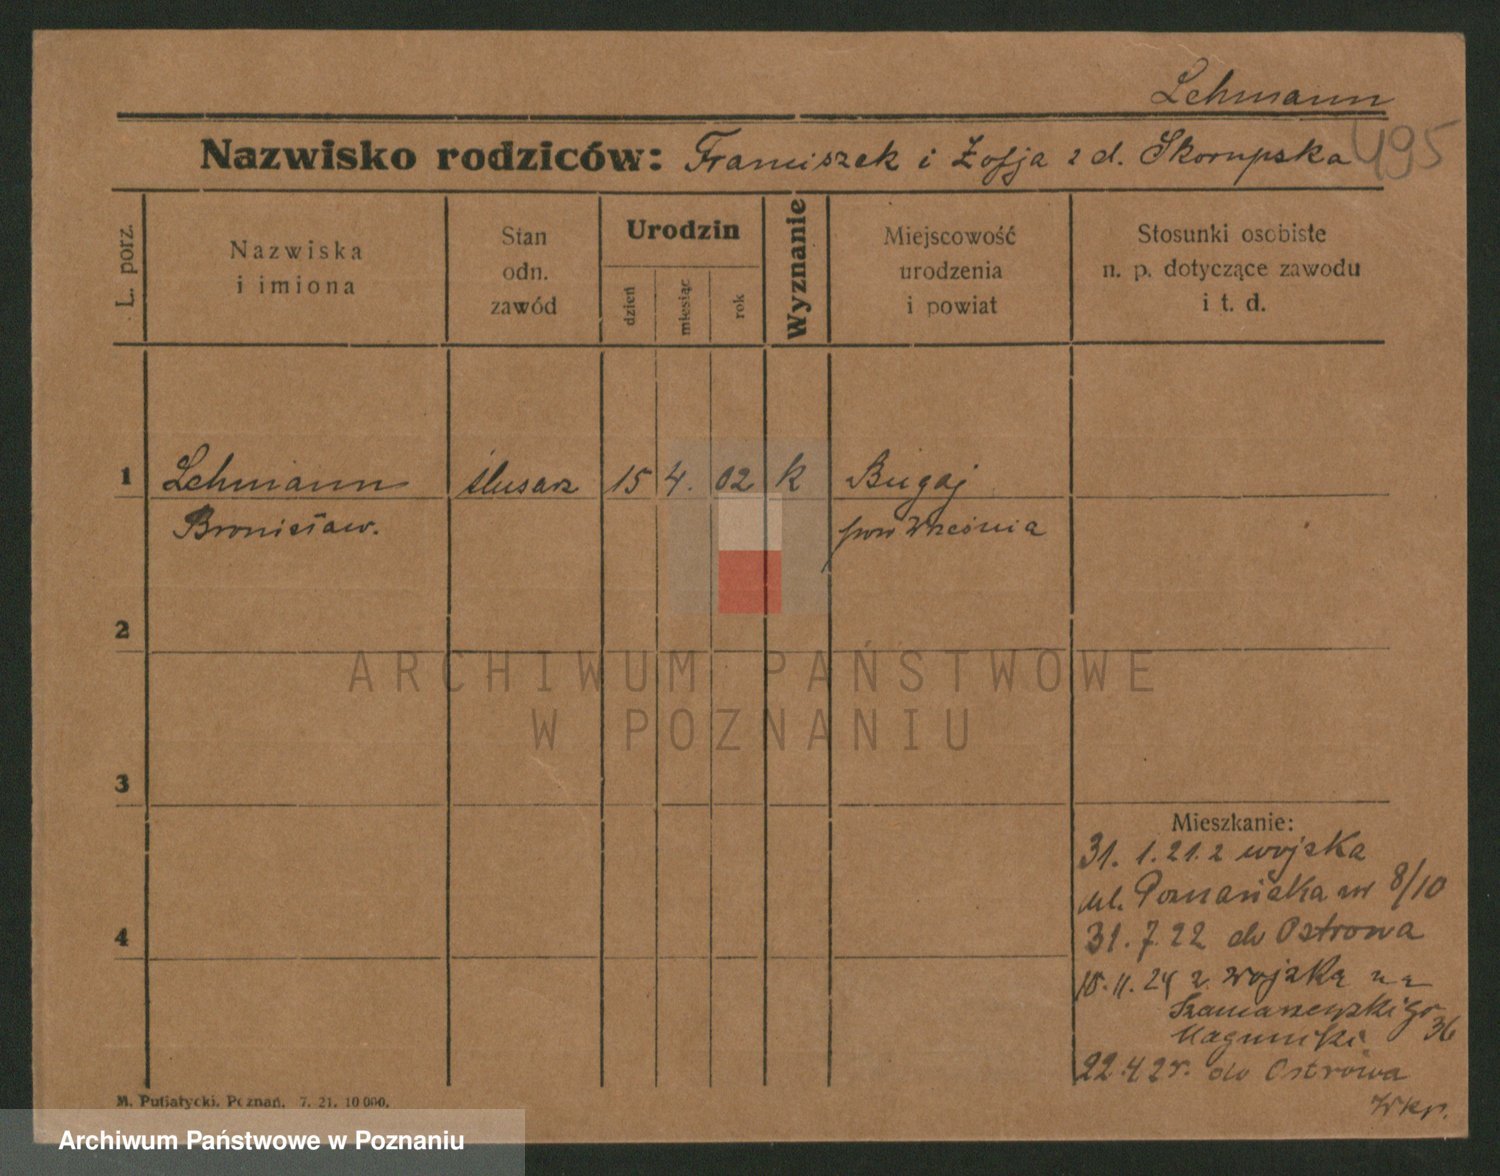 Lehmann
Nazwisko rodziców: Franciszek i Zofja z d. Skorupska
495
L. porz.
Nazwiska
i imiona
Stan
odn.
zawód
Urodzin
dzień
miesiąc
rok
Wyznanie
Miejscowość
urodzenia
i powiat
Stosunki osobiste
n. p. dotyczące zawodu
i t. d.
1 Lehmann ślusarz 15 4. 02 k Bugaj
Bronisław. pow Września
2
ARCHIWUM PAŃSTWOWE
W POZNANIU
3
Mieszkanie:
31. 1. 21. z wojska
ul. Poznańska nr 8/10
31. 7. 22 do Ostrowa
4
15. 11. 24 z wojska
36
22. 4. 25. do Ostrowa
Wkp.
M. Putiatycki, Poznań. 7. 21. 10 000.
Archiwum Państwowe w Poznaniu